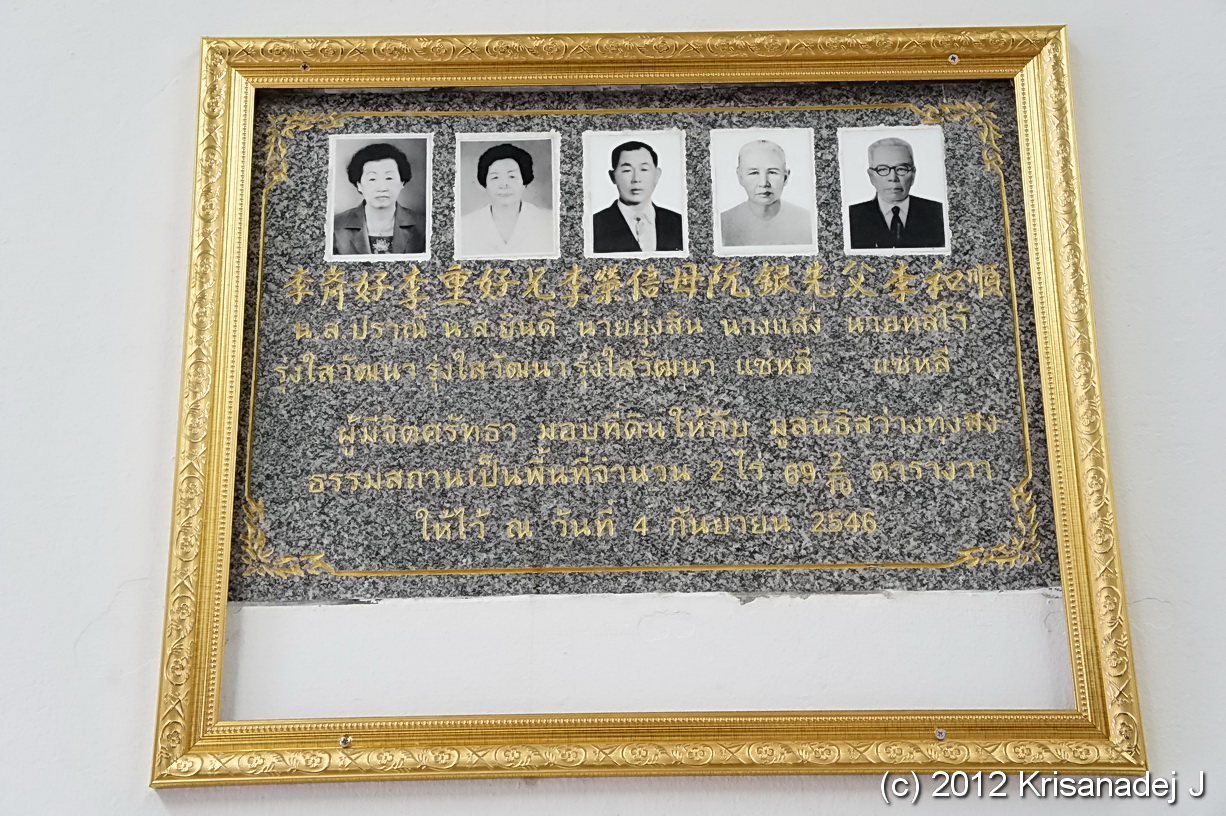 李齊好李重好兄李榮信母阮銀先父李和順
น.ส.ปราณี น.ส.ยินดี นายยุ่งสิน นางแส้ง นายหลีโว้
รุ่งใสวัฒนา รุ่งใสวัฒนา รุ่งใสวัฒนา แซ่หลี แซ่หลี
ผู้มีจิตศรัทธา มอบที่ดินให้กับ มูลนิธิสว่างทุ่งสง
ธรรมสถานเป็นพื้นที่จำนวน 2 ไร่ 69 2/10 ตารางวา
ให้ไว้ ณ วันที่ 4 กันยายน 2546
(c) 2012 Krisanadej J